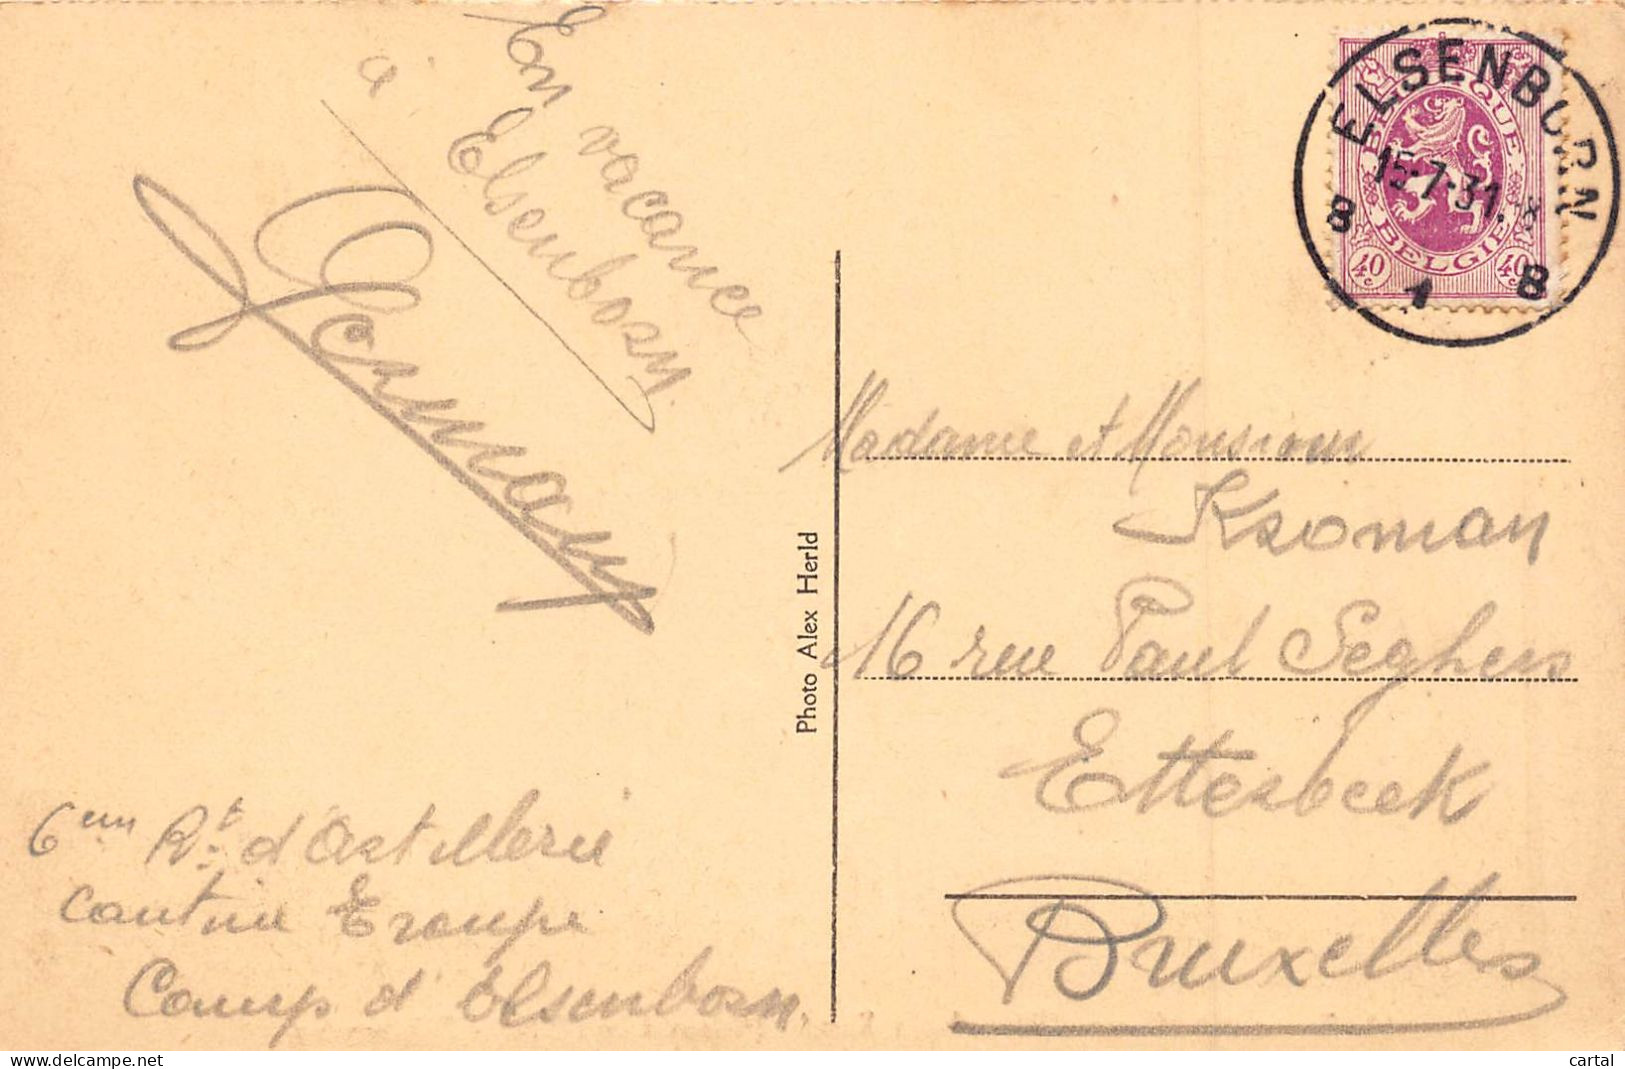 En vacance
à Elsenborn.
Germany
6em Rt d'Artillerie
Cantine Troupe
Camp d'Elsenborn.
Photo Alex Herld
ELSENBORN
15.7-31.
8 1 B
BELGIQUE
BELGIE
40c 40c
Madame et Monsieur
Kroman
16 rue Paul Seghers
Etterbeek
Bruxelles
www.delcampe.net
cartal